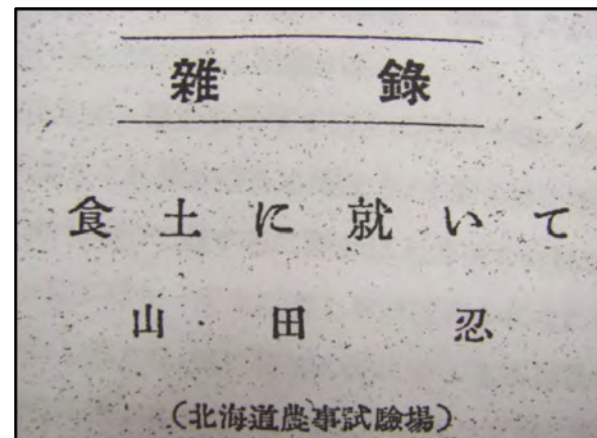 雜錄
食土に就いて
山田忍
(北海道農事試驗場)